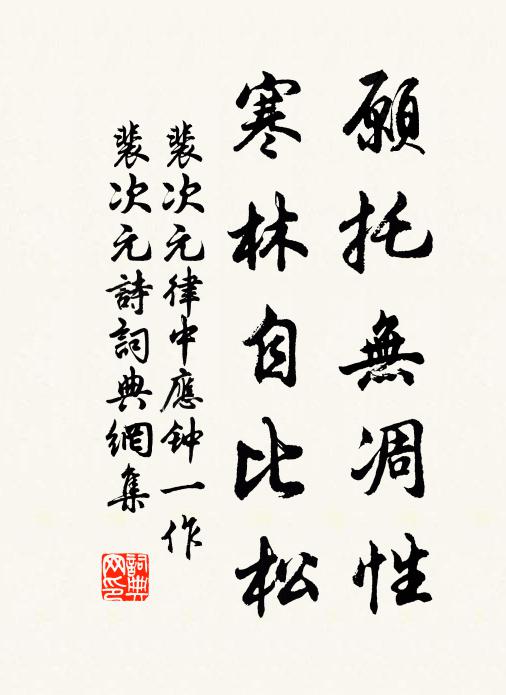 願托無凋性
寒林自比松
裴次元律中應钟一作
裴次元詩詞典網集
詞典網印